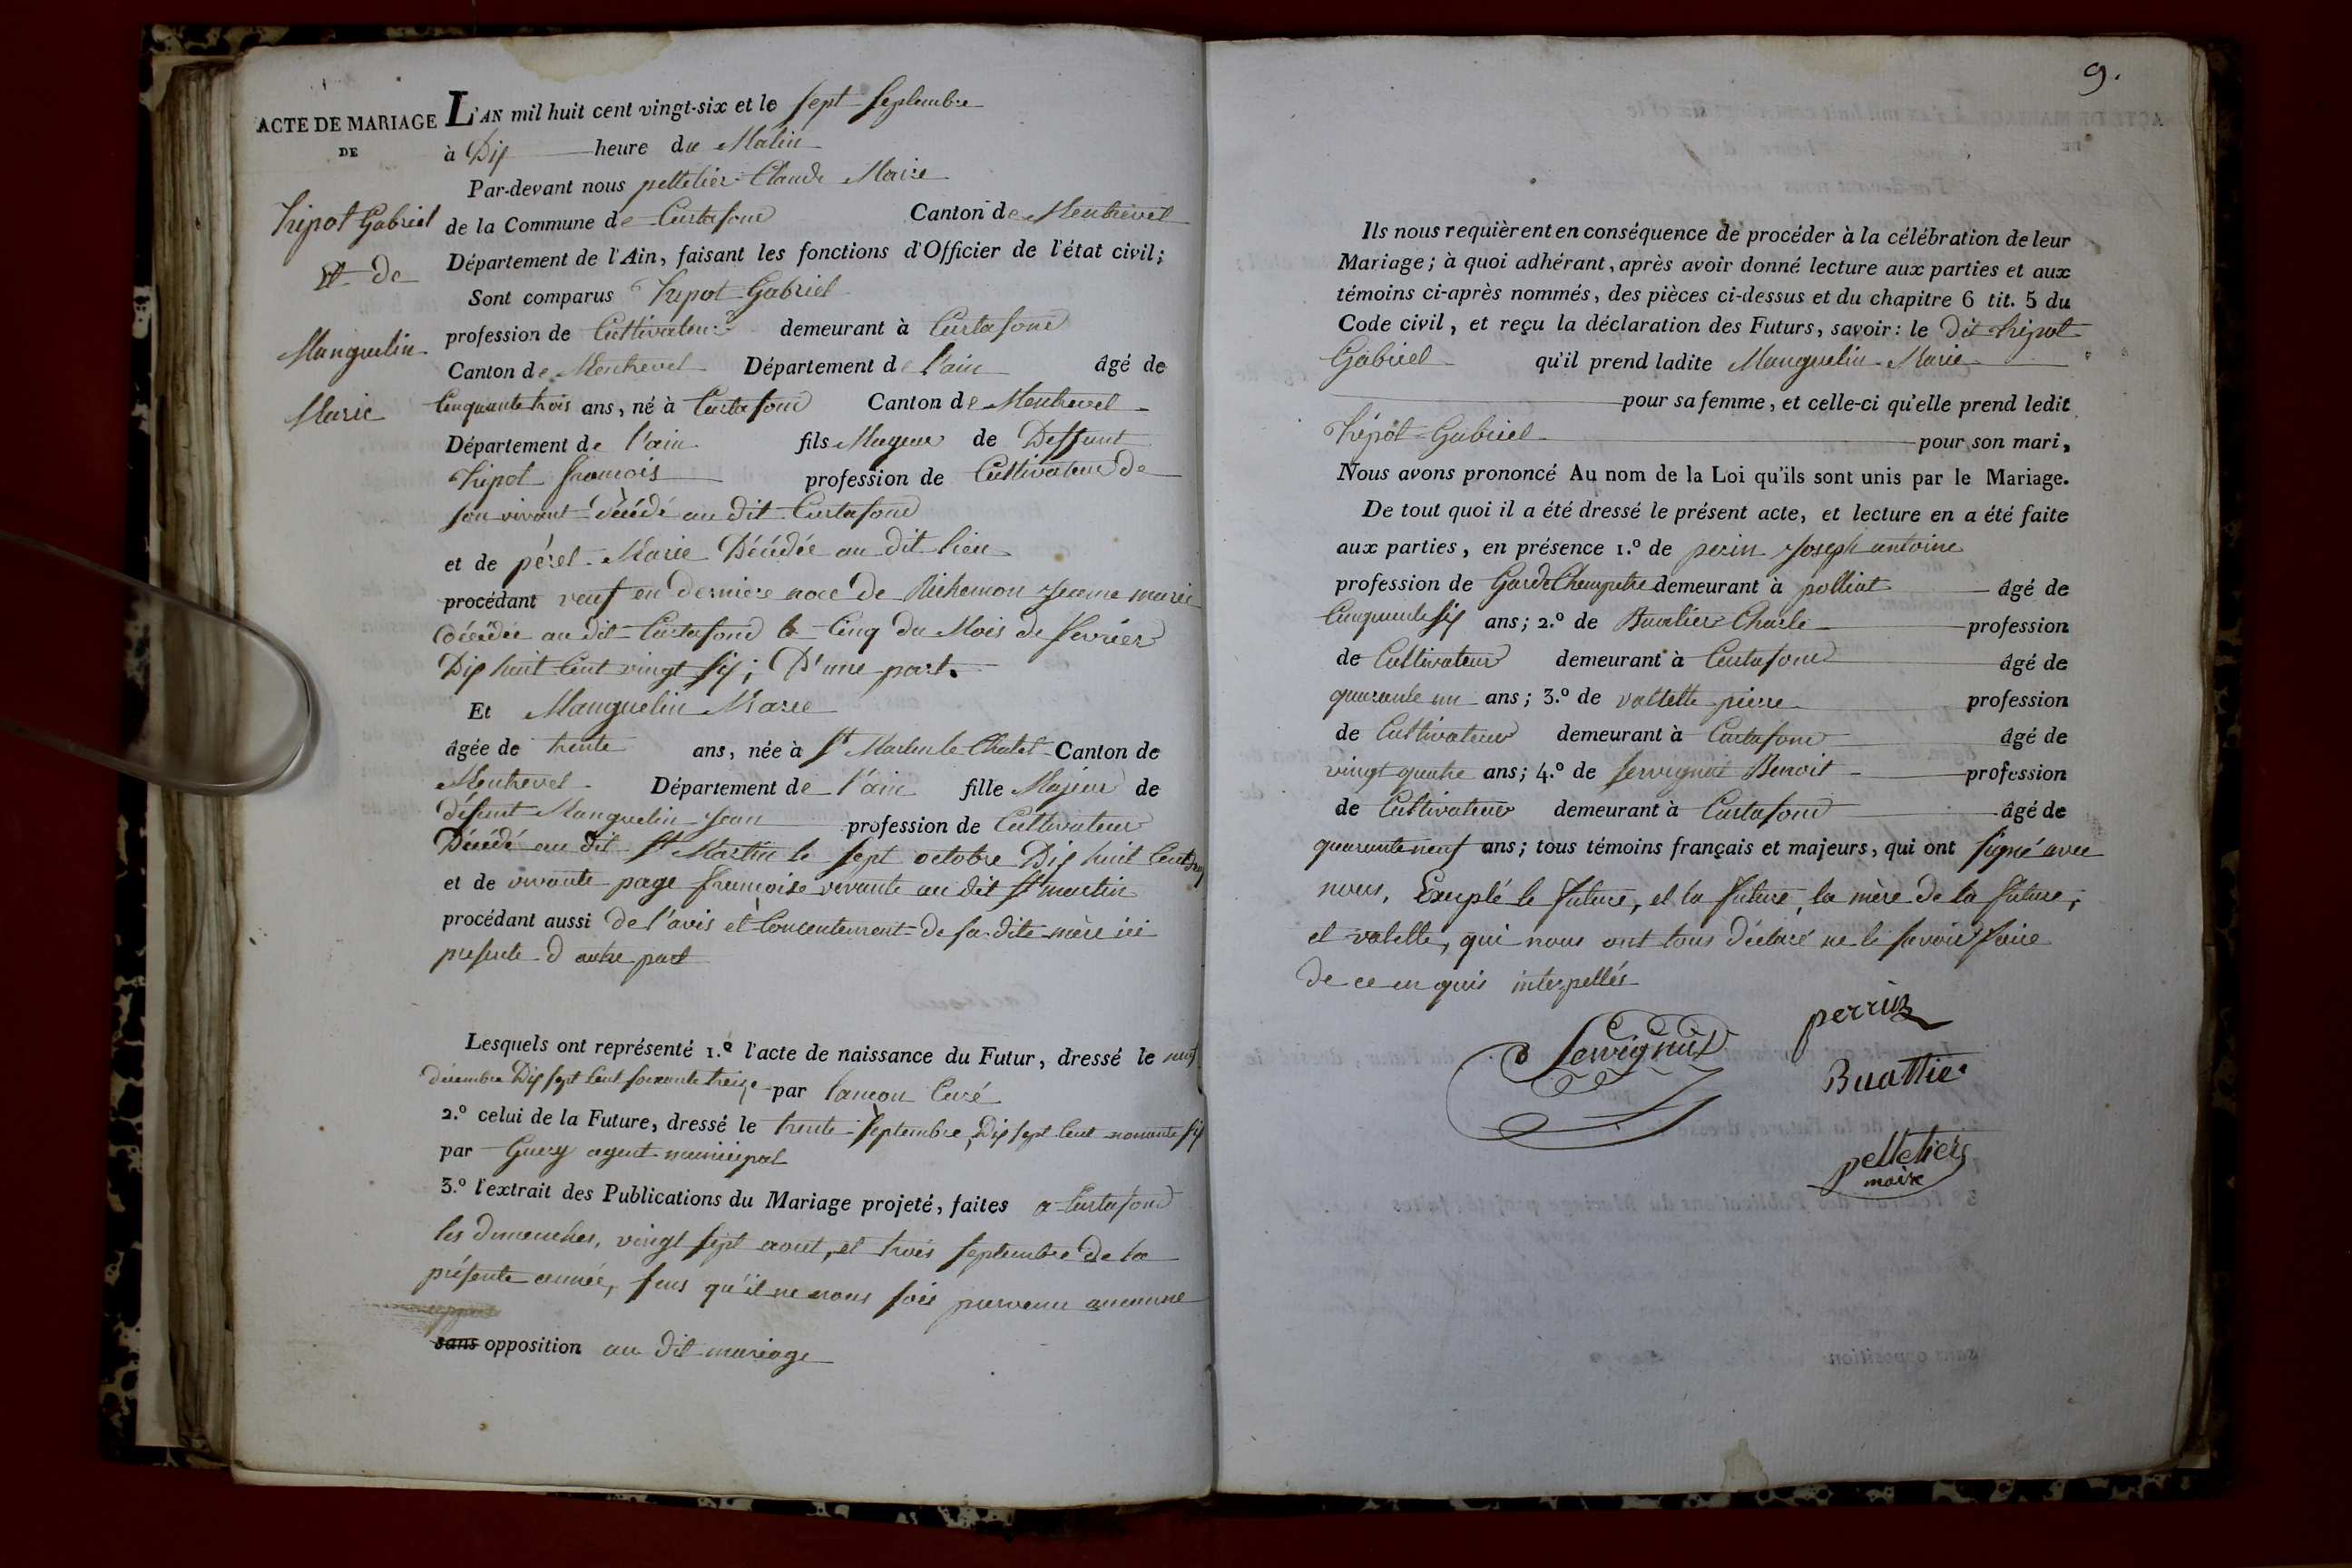 ACTE DE MARIAGE
DE
Tripot Gabriel
Et de
Manguelin
Marie
L'AN mil huit cent vingt-six et le sept Septembre
à Dix heure du Matin
Par-devant nous pelletier Claude Maire
de la Commune de Curtafond Canton de Montrevel
Département de l'Ain, faisant les fonctions d'Officier de l'état civil;
Sont comparus Tripot Gabriel
profession de Cultivateur demeurant à Curtafond
Canton de Montrevel Département de l'ain âgé de
Cinquante trois ans, né à Curtafond Canton de Montrevel
Département de l'ain fils Mageur de Deffunt
Tripot francois profession de Cultivateur de
son vivant décédé au dit Curtafond
et de pérel Marie Décédée au dit lieu
procédant veuf en derniere noce de Richemon Jeanne marie
décédée au dit Curtafond le Cinq du Mois de Fevrier
Dix huit Cent vingt six; D'une part.
Et Manguelin Marie
âgée de trente ans, née à St Martin le Chatel Canton de
Montrevel Département de l'ain fille Majeur de
défunt Manguelin Jean profession de Cultivateur
Décédé au dit St Martin le sept octobre Dix huit Cent
et de vivante page francoise vivante au dit St martin
procédant aussi de l'avis et Concentement de sa dite mère ici
presente d autre part
Lesquels ont représenté 1.º l'acte de naissance du Futur, dressé le neuf
décembre Dix sept Cent soixante treize par Curé
2.º celui de la Future, dressé le trente Septembre, Dix sept Cent nonante six
par Guey agent municipal
3.º l'extrait des Publications du Mariage projeté, faites a Curtafond
les dimenches, vingt sept aout, et trois septembre de la
présente année, sens qu'il ne nous sois parvenu aucunne
sans opposition au dit mariage
9.
Ils nous requièrent en conséquence de procéder à la célébration de leur
Mariage; à quoi adhérant, après avoir donné lecture aux parties et aux
témoins ci-après nommés, des pièces ci-dessus et du chapitre 6 tit. 5 du
Code civil, et reçu la déclaration des Futurs, savoir: le Dit Tripot
Gabriel qu'il prend ladite Manguelin Marie
pour sa femme, et celle-ci qu'elle prend ledit
Tripot Gabriel pour son mari,
Nous avons prononcé Au nom de la Loi qu'ils sont unis par le Mariage.
De tout quoi il a été dressé le présent acte, et lecture en a été faite
aux parties, en présence 1.º de perin Joseph antoine
profession de Garde Champetre demeurant à polliat âgé de
Cinquante six ans; 2.º de Buatier Charle profession
de Cultivateur demeurant à Curtafond âgé de
quarante un ans; 3.º de vallette pierre profession
de Cultivateur demeurant à Curtafond âgé de
vingt quatre ans; 4.º de Servignat Benoit profession
de Cultivateur demeurant à Curtafond âgé de
quarante neuf ans; tous témoins français et majeurs, qui ont signé avec
nous, Exepté le future, et la future, la mère de la future,
et valette, qui nous ont tous déclaré ne le savoir faire
de ce en quis interpellés
Servignat
perrin
Buattier
pelletier
maire